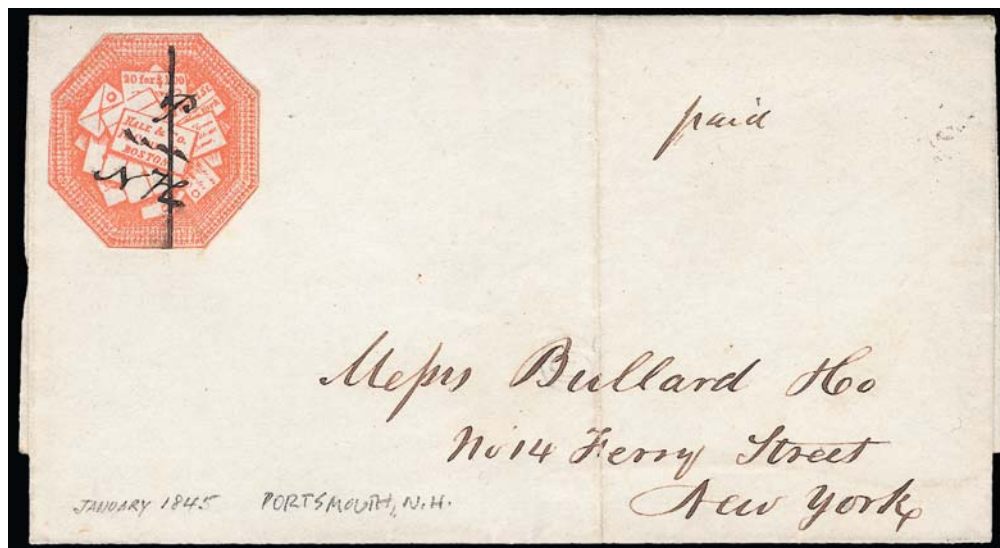 20 for $1.00
HALE & CO.
BOSTON
P
NH
paid
Messrs Bullard & Co
No 14 Ferry Street
New York
JANUARY 1845 PORTSMOUTH, N.H.